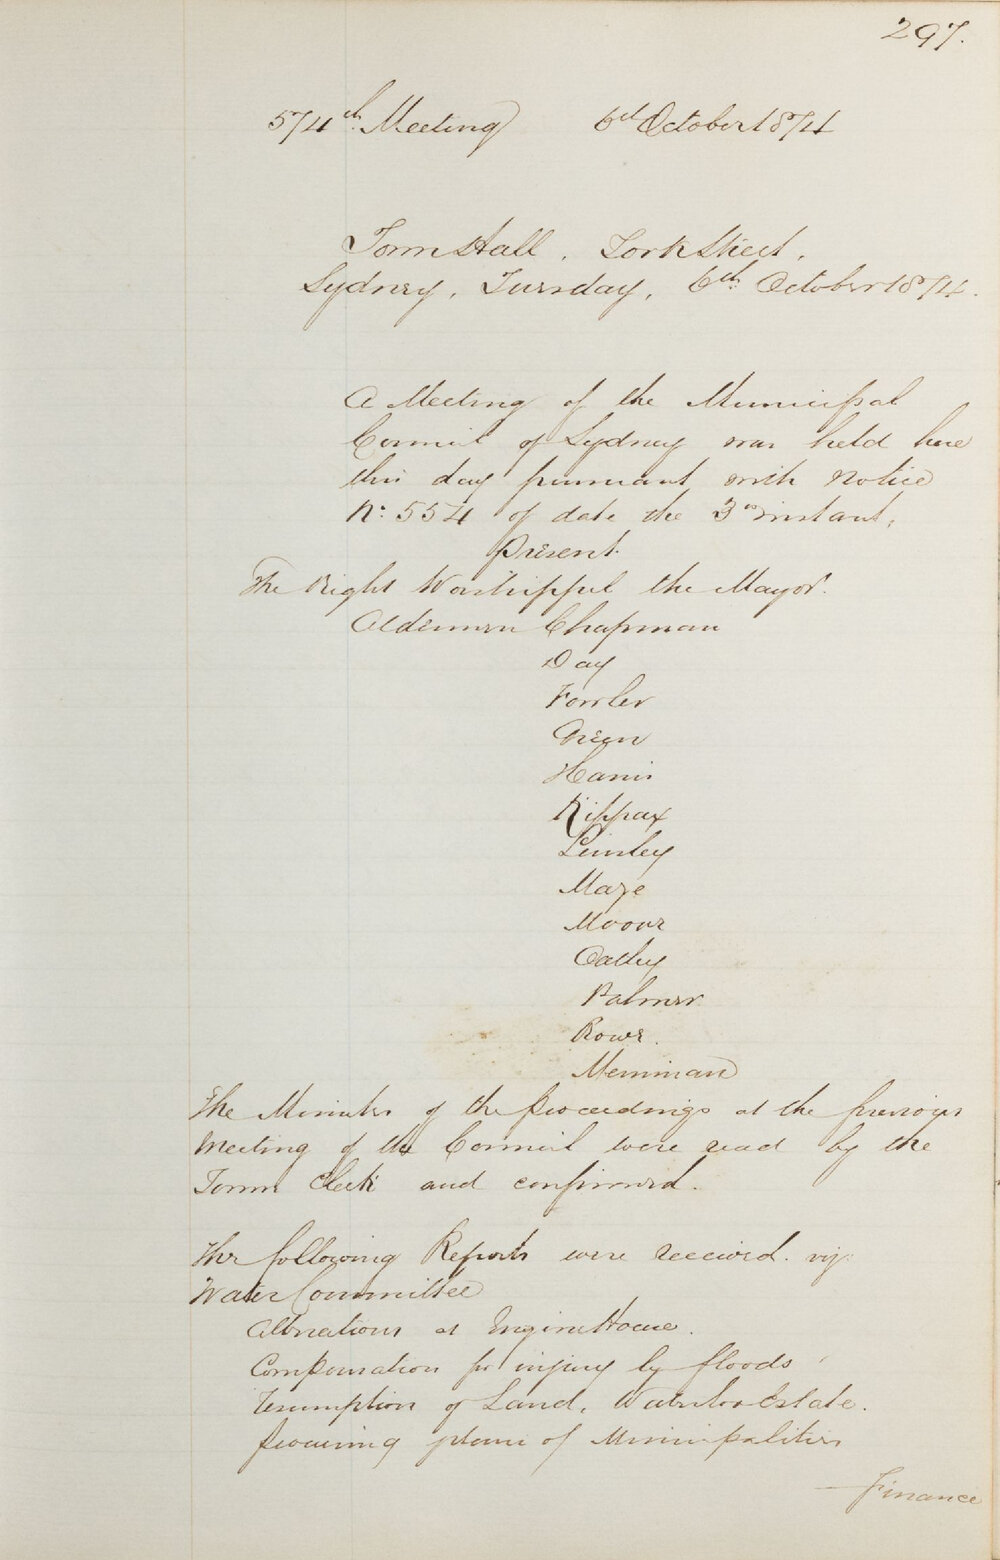 297.
574th Meeting 6th October 1874
Town Hall, York Street,
Sydney, Tuesday, 6th October 1874.
A Meeting of the Municipal
Council of Sydney was held here
this day pursuant with notice
No. 554 of date the 3rd instant,
Present
The Right Worshipful the Mayor.
Aldermen Chapman
Day
Fowler
Green
Harris
Kippax
Linsley
Maze
Moore
Oatley
Palmer
Rowe.
Merriman
The Minutes of the proceedings at the previous
meeting of the Council were read by the
Town Clerk and confirmed.
The following Reports were received. viz:
Water Committee
Alterations at Engine House.
Compensation for injury by floods
Resumption of Land, Waterloo Estate.
procuring plans of Municipalities
Finance